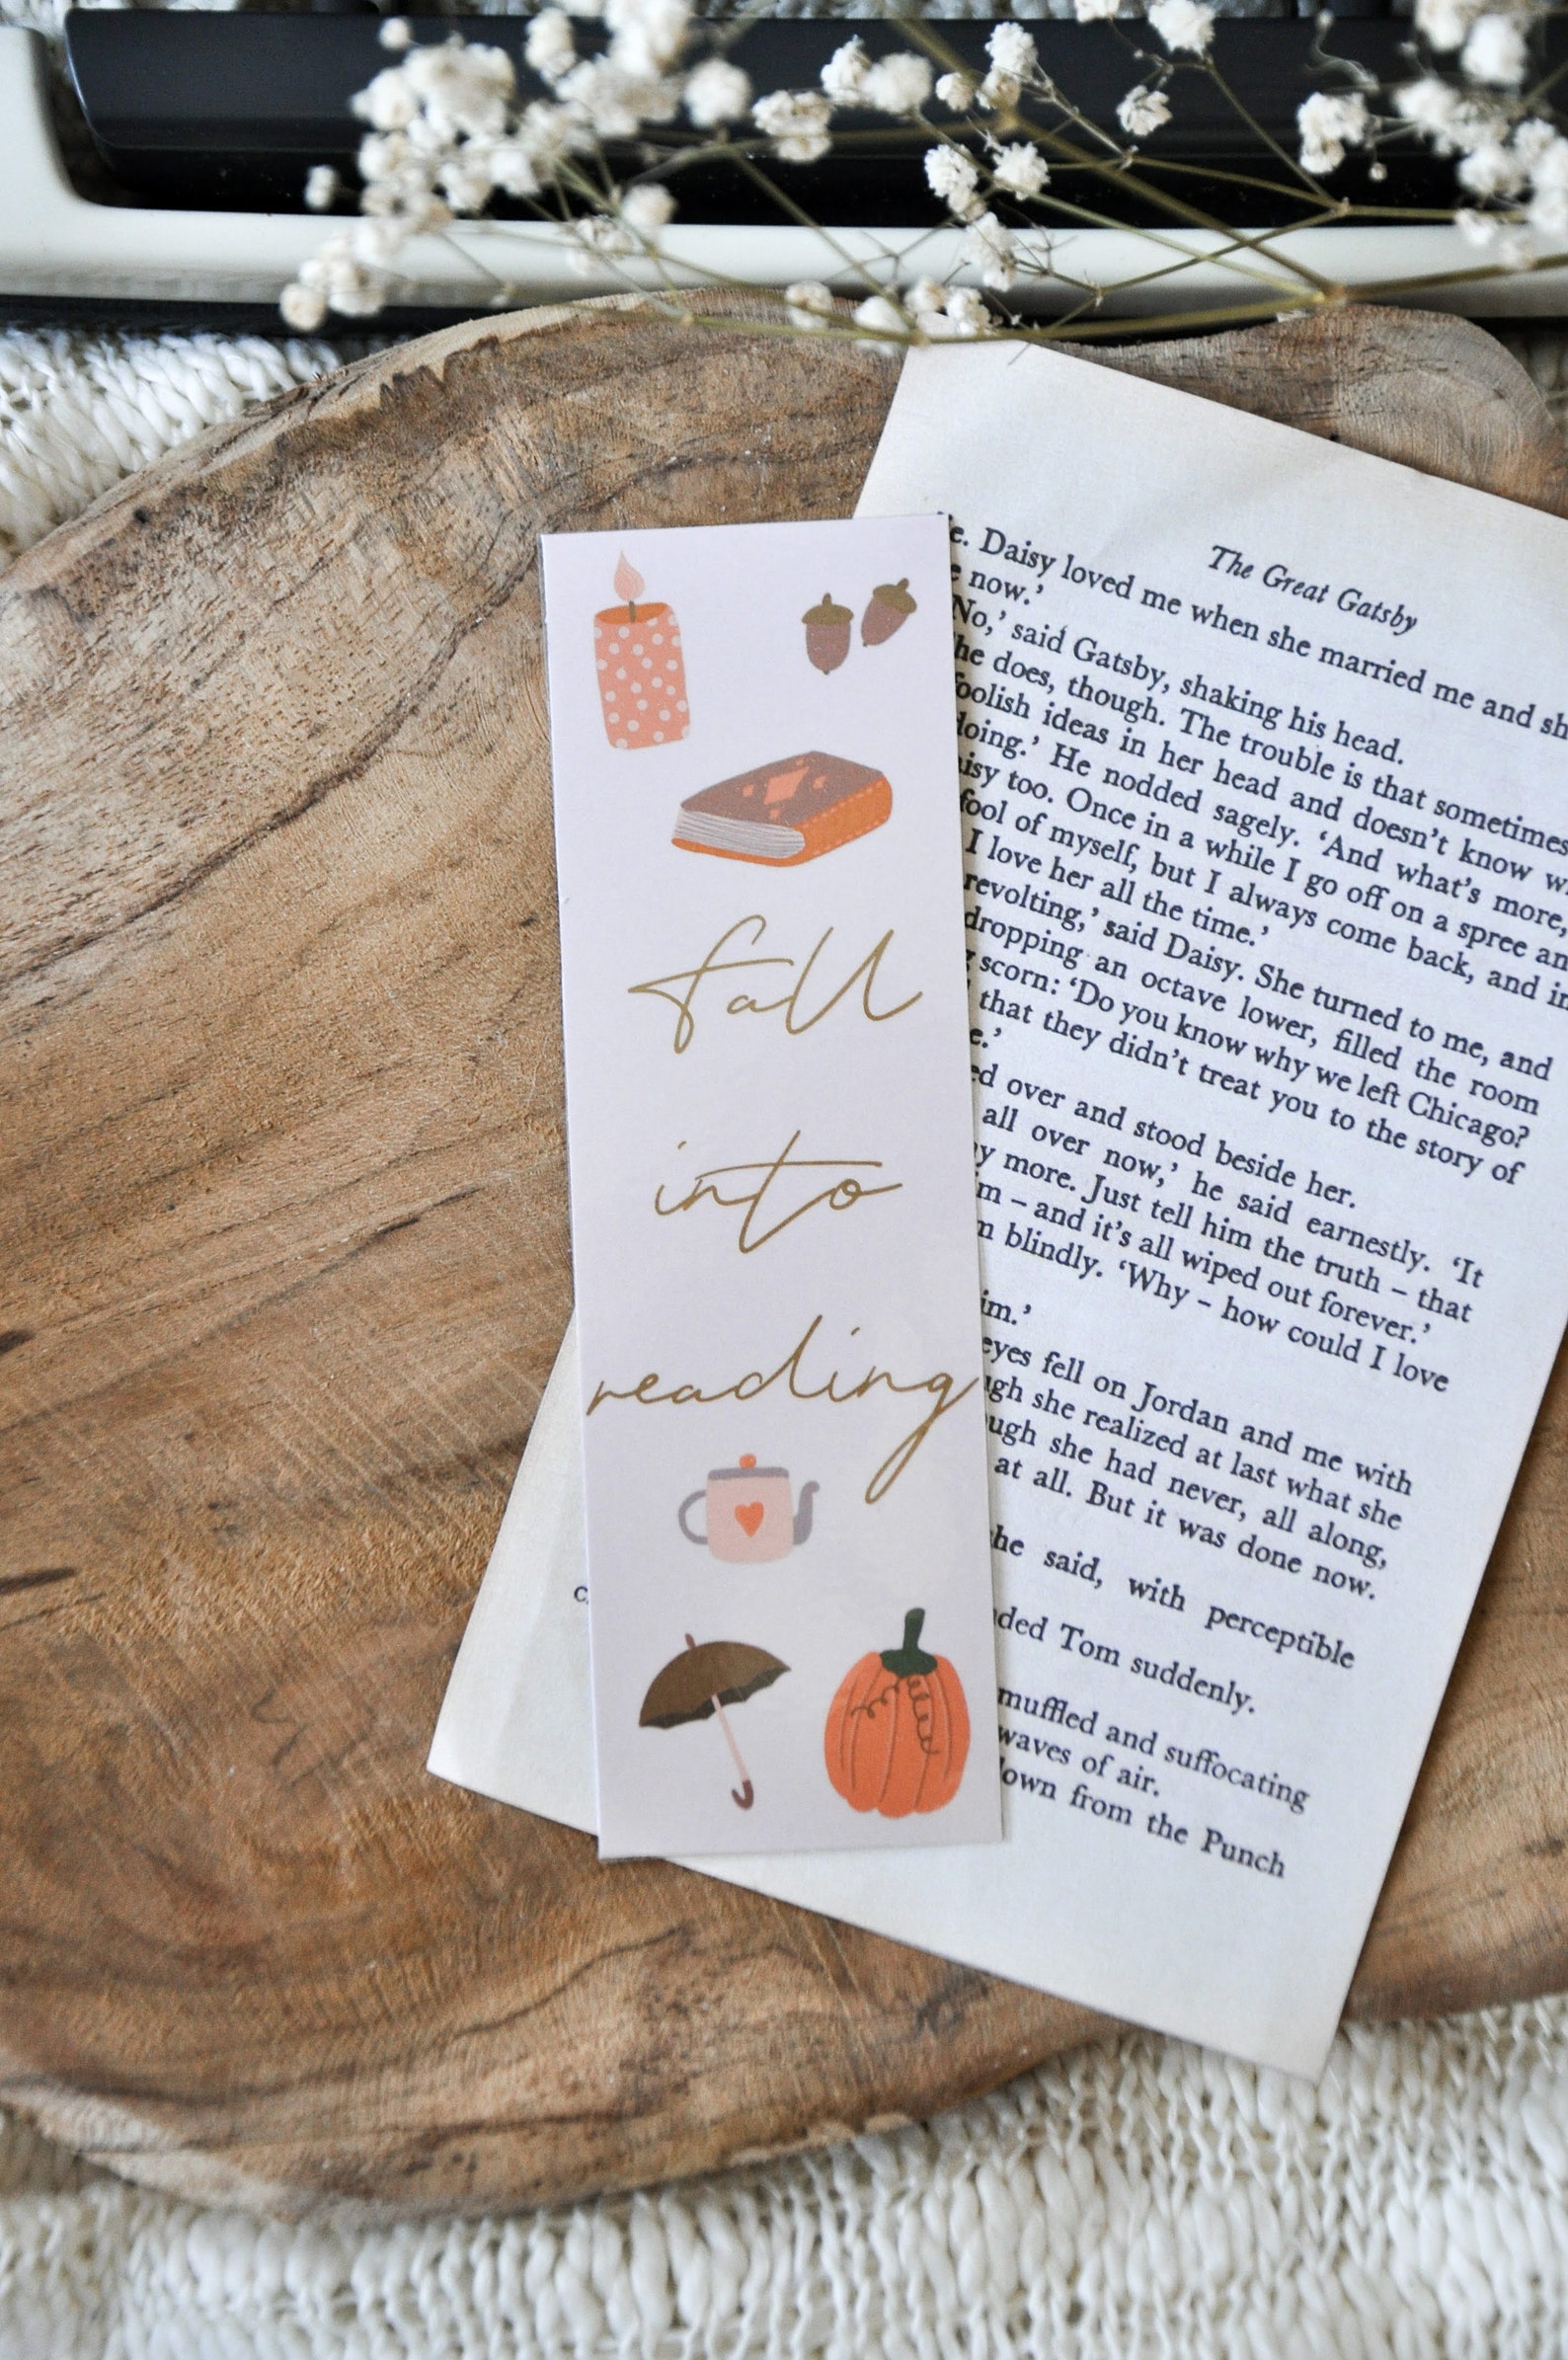 fall
into
reading
The Great Gatsby
Daisy loved me when she married me and
now.’
No,’ said Gatsby, shaking his head.
he does, though. The trouble is that sometimes
foolish ideas in her head and doesn’t know
doing.’ He nodded sagely. ‘And what’s more,
too. Once in a while I go off on a spree
fool of myself, but I always come back, and
I love her all the time.’
revolting,’ said Daisy. She turned to me, and
dropping an octave lower, filled the room
scorn: ‘Do you know why we left Chicago?
that they didn’t treat you to the story of
over and stood beside her.
all over now,’ he said earnestly. ‘It
more. Just tell him the truth – that
– and it’s all wiped out forever.’
blindly. ‘Why – how could I love
eyes fell on Jordan and me with
she realized at last what she
she had never, all along,
at all. But it was done now.
he said, with perceptible
Tom suddenly.
muffled and suffocating
waves of air.
down from the Punch